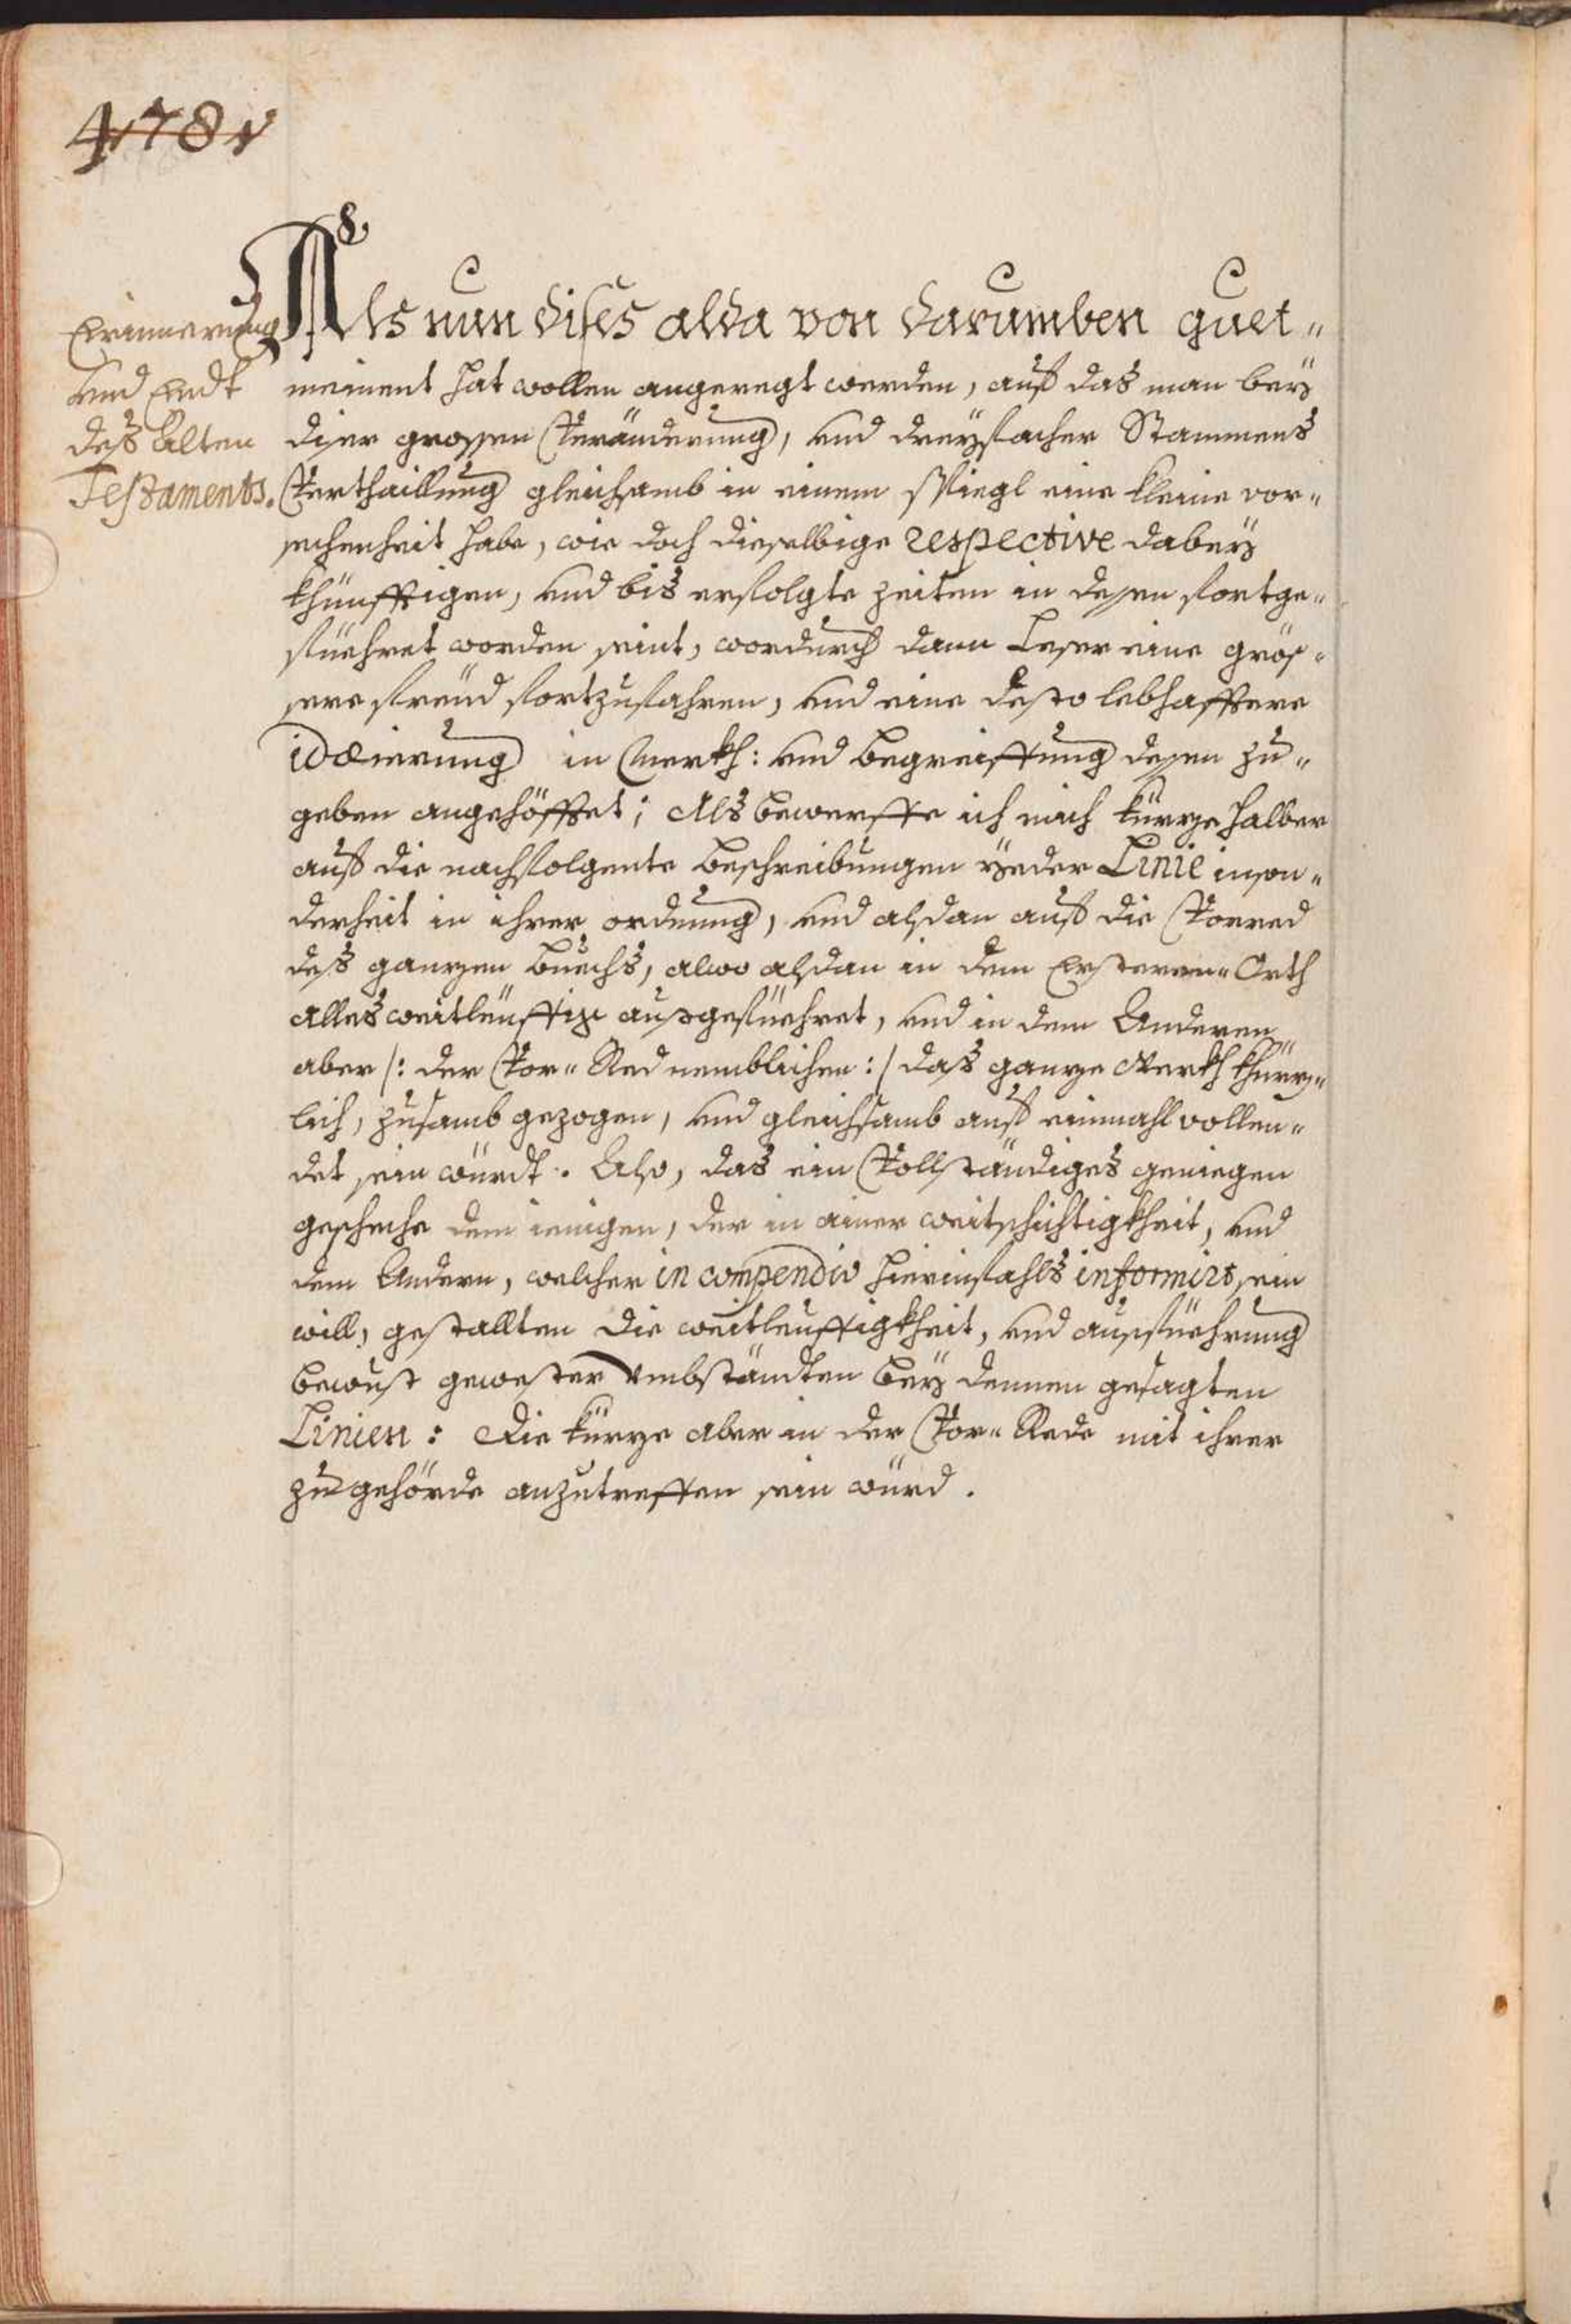 478v
8.
Erinnerung
und Endt
deß Alten
Testaments.
Als nun dises alda von darumben guet„
meinent hat wollen angeregt werden, auf das man beÿ
diser grossen Veränderung, und dreÿfacher Stammens
Verthaillung gleichsamb in einem Spiegl eine kleine vor„
sechenheit habe, wie doch dieselbige respective dabeÿ
khünfftigen, und bis erfolgte zeiten in dessen fortge„
füehret worden seint, wordurch dann Leser eine grös„
sere freud fortzufahren, und eine desto lebhafftere
idæierung in Merkh: und begreiffung dessen zu„
geben angehöffet; Als bewerffe ich mich kürze halber
auf die nachfolgente beschreibungen ÿeder Linie inson„
derheit in ihrer ordnung, und alsdan auf die Vorred
deß ganzen buechs, alwo alsdan in dem Ersteren„ Orth
alles weitleüffig außgefüehret, und in dem Anderen
aber /: der Vor„ Red nemblichen :/ daß ganze Werkh khürz„
lich, zusamb gezogen, und gleichsamb auf einmahl vollen„
det sein würdt. Also, das ein Vollständiges geniegen
gescheche dem ienigen, der in ainer weitschichtigkheit, und
dem Andern, welcher in compendio hierinfahls informirt sein
will, gestallten die weitleuffigkheit, und ausfüehrung
bewust gewester umbständten beÿ dennen gesagten
Linien: Die kürze aber in der Vor„ Rede mit ihrer
zugehörde anzutreffen sein würd.